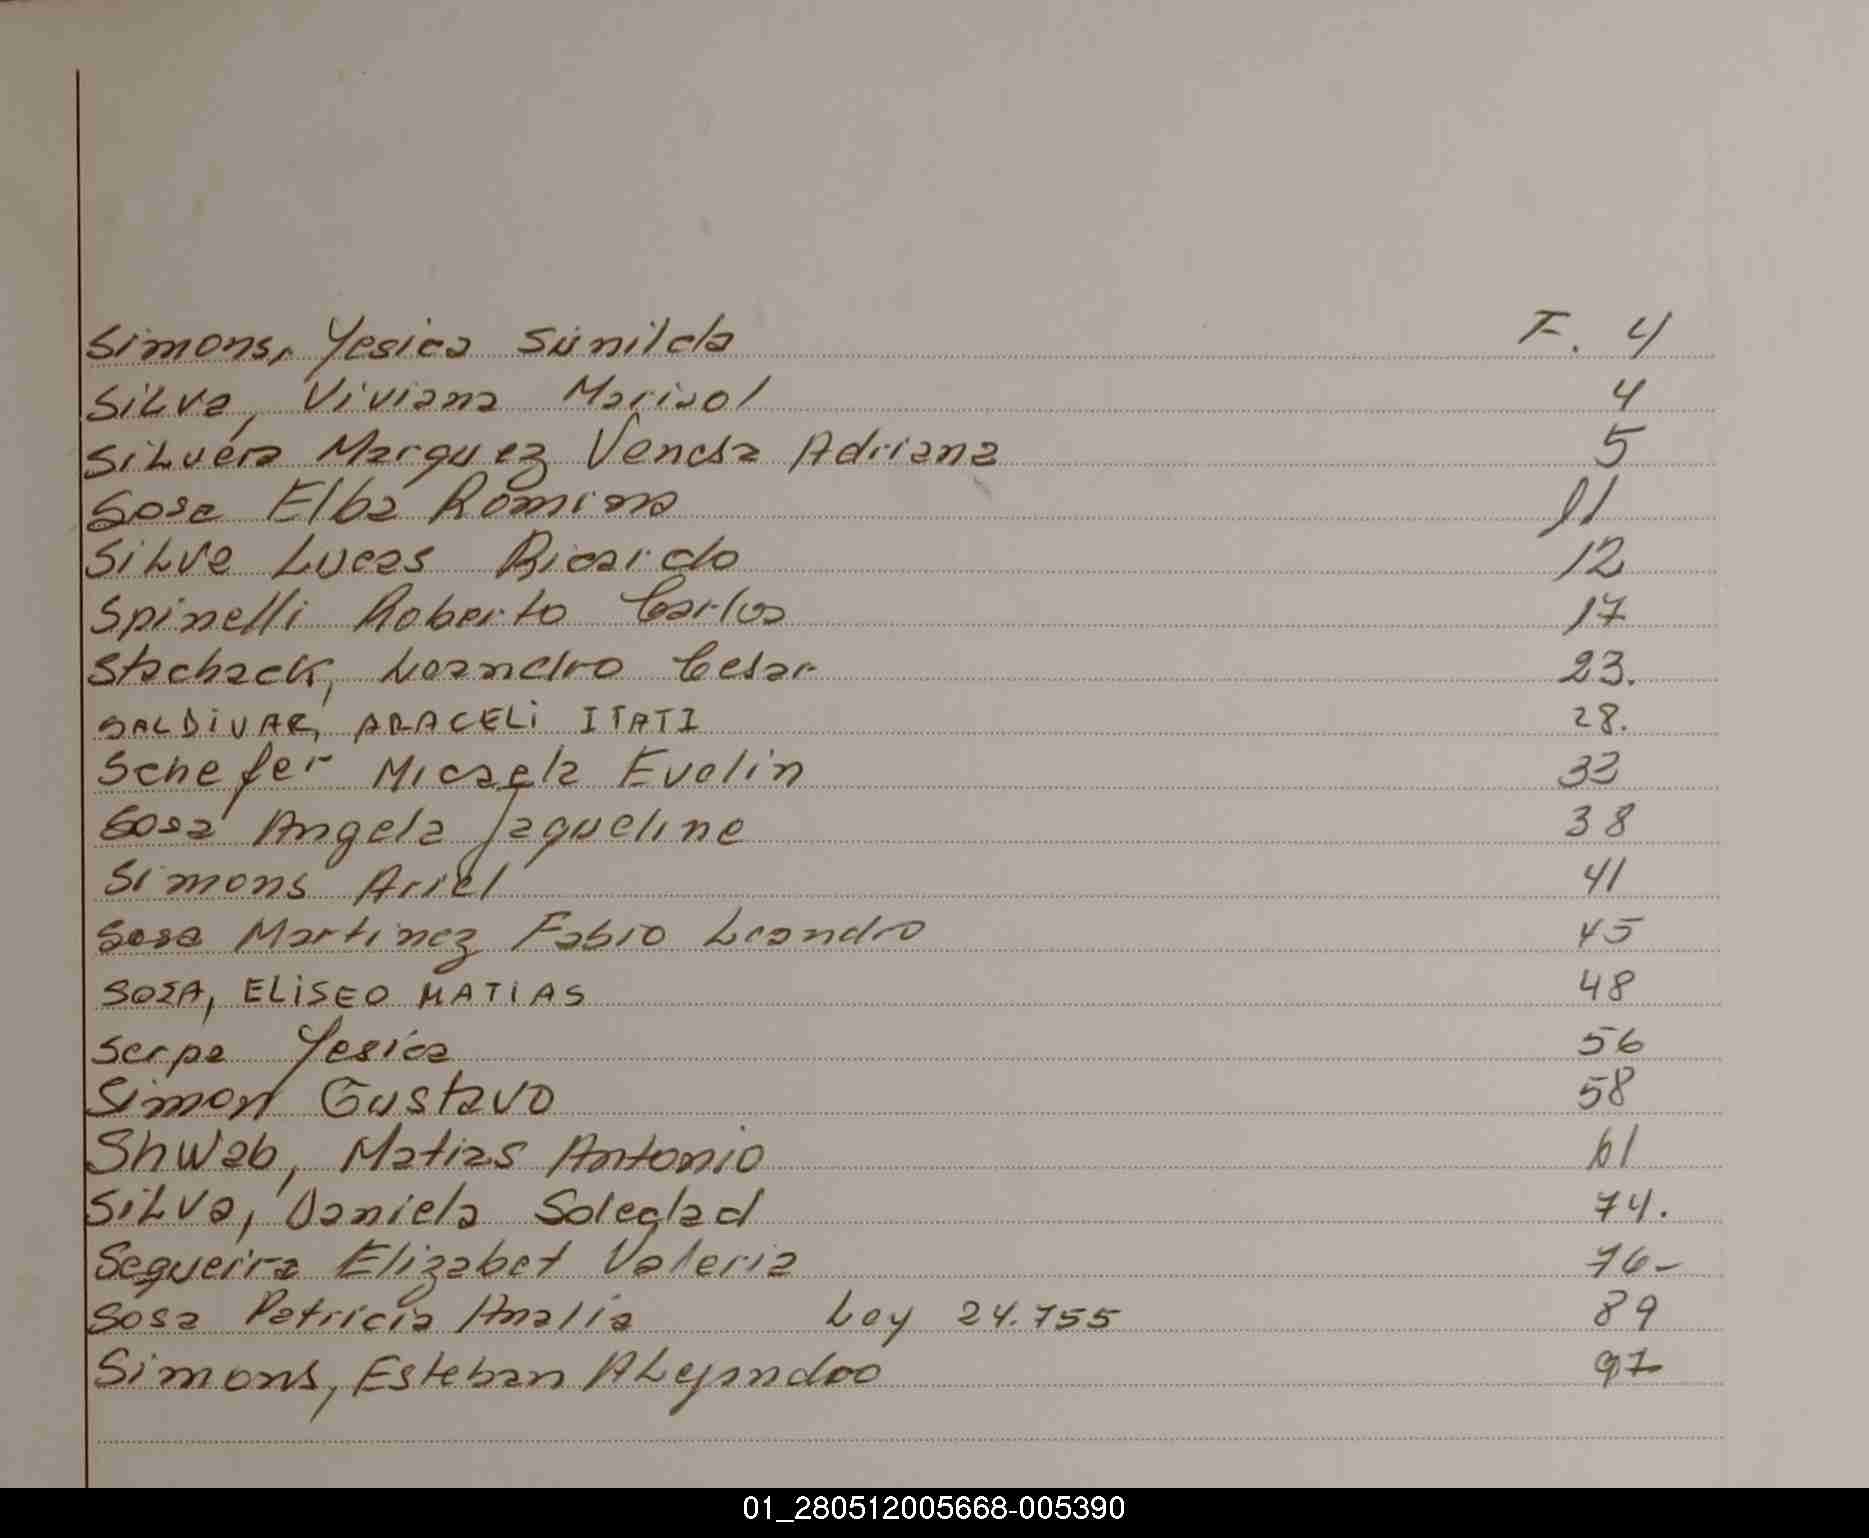 Simons, Yesica Sunilda F. 4
SiLva, Viviana Marisol 4
SiLvera Marquez Venesa Adriana 5
Sosa Elba Romina 11
SiLva Lucas Ricardo 12
Spinelli Roberto Carlos 17
Stachack, Leandro Cesar 23.
SALDiVAR, ARACELi ITATI 28.
Schefer Micaela Evelin 33
Sosa Angela Jaqueline 38
Simons Ariel 41
Sosa Martinez Fabio Leandro 45
SOSA, ELiSEO MATIAS 48
Serpa Yesica 56
Simon Gustavo 58
Shwab, Matias Antonio 61
SiLva, Daniela Soledad 74.
Sequeira Elizabet Valeria 76-
Sosa Patricia Analia Ley 24.755 89
Simons, Esteban ALejandro 97
01_280512005668-005390